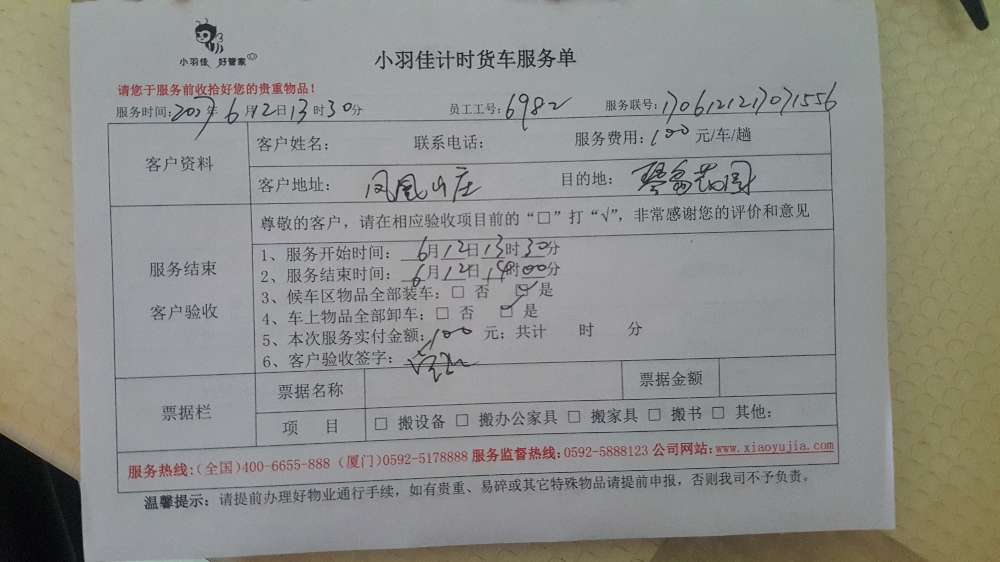 小羽佳 好管家
小羽佳计时货车服务单
请您于服务前收拾好您的贵重物品!
服务时间:2017年6月12日13时30分 员工工号:6982 服务联号:17061212171071556
客户资料
客户姓名: 联系电话: 服务费用:100元/车/趟
客户地址: 凤凰山庄 目的地:
服务结束
客户验收
尊敬的客户,请在相应验收项目前的“□”打“√”,非常感谢您的评价和意见
1、服务开始时间: 6月12日13时30分
2、服务结束时间: 6月12日14时00分
3、候车区物品全部装车:□ 否 ☑ 是
4、车上物品全部卸车:□ 否 ☑ 是
5、本次服务实付金额:100 元;共计 时 分
6、客户验收签字:
票据栏
票据名称 票据金额
项 目 □ 搬设备 □ 搬办公家具 □ 搬家具 □ 搬书 □ 其他:
服务热线:(全国)400-6655-888 (厦门)0592-5178888 服务监督热线:0592-5888123 公司网站:www.xiaoyujia.com
温馨提示:请提前办理好物业通行手续,如有贵重、易碎或其它特殊物品请提前申报,否则我司不予负责。